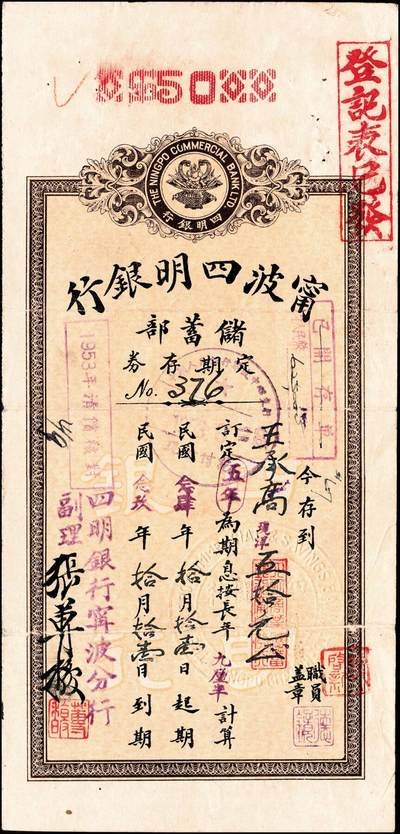 $50
登記表已發
THE NINGPO COMMERCIAL BANK LTD
四明銀行
甯波四明銀行
儲蓄部
定期存券
No. 376
已開存單
今存到
五承高
洋
五拾元正
訂定五年為期息按長年九厘半計算
民國叁肆年拾月拾壹日起期
民國叁玖年拾月拾壹日到期
職員蓋章
四明銀行甯波分行
副理
1953年清償核對